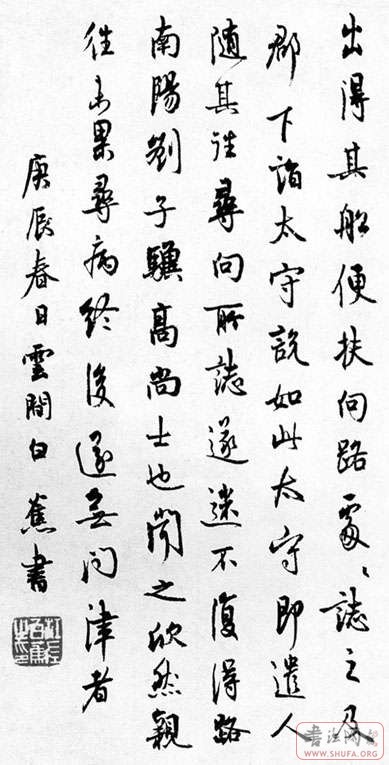 出得其船便扶向路處〻誌之及
郡下詣太守說如此太守即遣人
隨其往尋向所誌遂迷不復得路
南陽劉子驥高尚士也聞之欣然親
往未果尋病終後遂無問津者
庚辰春日雲間白蕉書
WWW.SHUFA.ORG